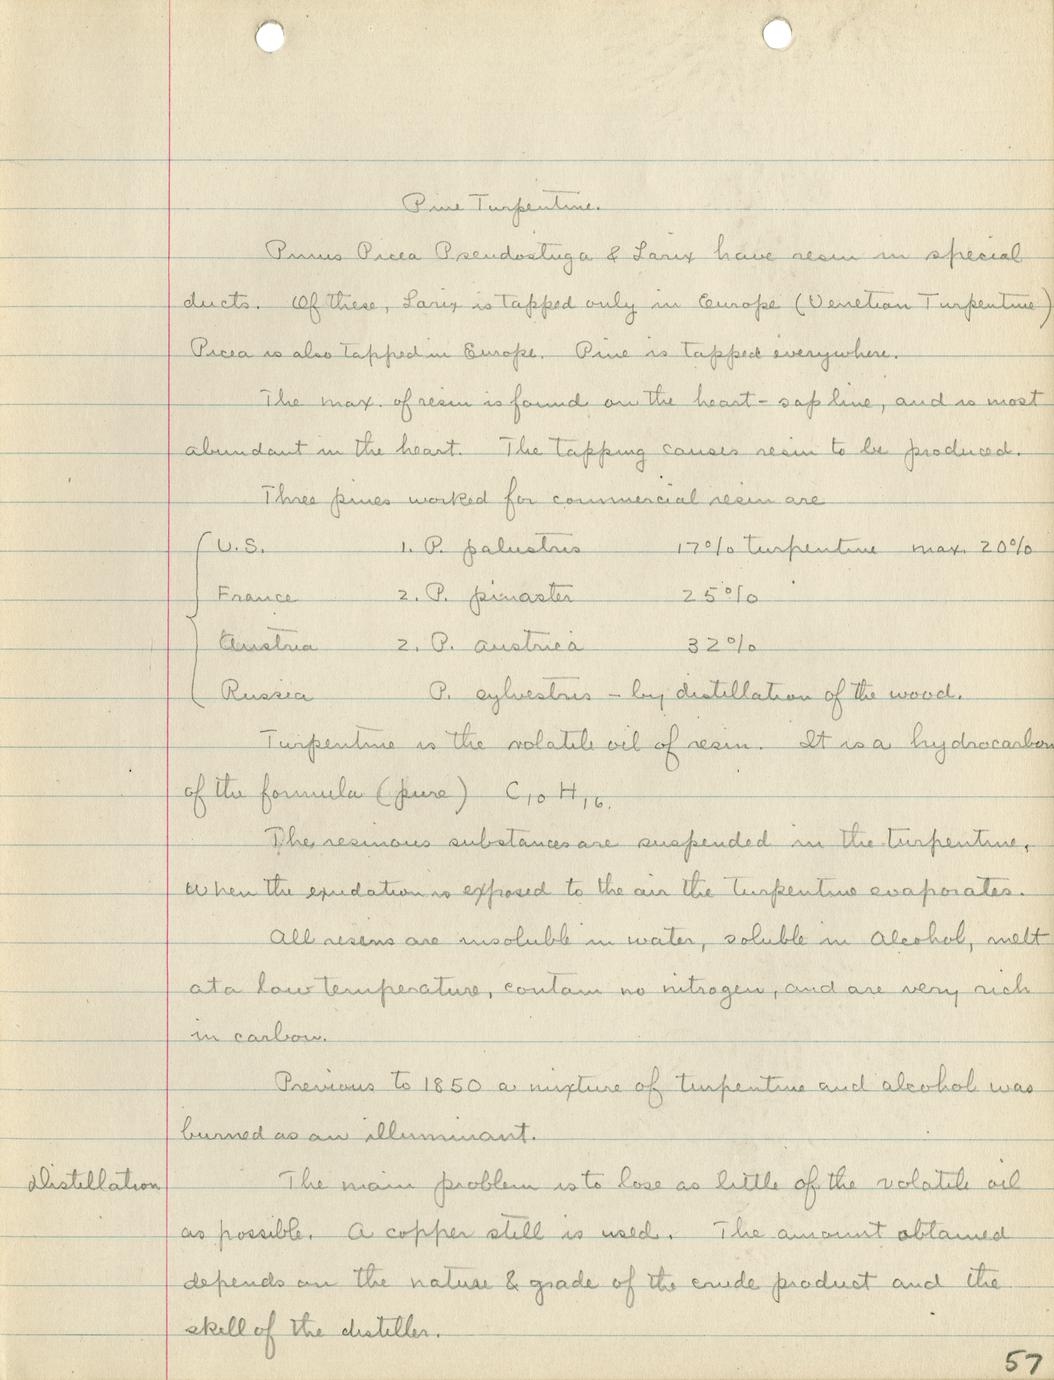 Pine Turpentine.
Pinus Picea Pseudostuga & Larix have resin in special
ducts. Of these, Larix is tapped only in Europe (Venetian Turpentine)
Picea is also tapped in Europe. Pine is tapped everywhere.
The max. of resin is found on the heart-sap line, and is most
abundant in the heart. The tapping causes resin to be produced.
Three pines worked for commercial resin are
U.S. 1. P. palustris 17% turpentine max. 20%
France 2. P. pinaster 25%
Austria 2. P. austrica 32%
Russia P. sylvestris - by distillation of the wood.
Turpentine is the volatile oil of resin. It is a hydrocarbon
of the formula (pure) C10 H16.
The resinous substances are suspended in the turpentine,
when the exudation is exposed to the air the turpentine evaporates.
All resins are insoluble in water, soluble in Alcohol, melt
at a low temperature, contain no nitrogen, and are very rich
in carbon.
Previous to 1850 a mixture of turpentine and alcohol was
burned as an illuminant.
distillation The main problem is to lose as little of the volatile oil
as possible. A copper still is used. The amount obtained
depends on the nature & grade of the crude product and the
skill of the distiller.
57